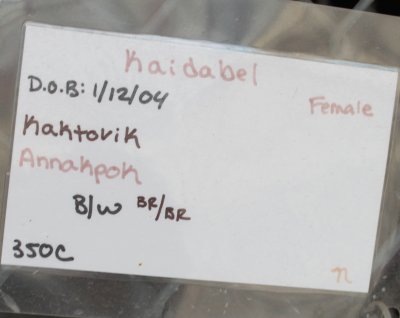 Kaidabel
D.O.B: 1/12/04
Female
Kaktovik
Annakpok
B/W BR/BR
350C
n